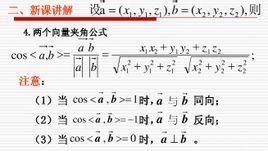 二、新课讲解 设a = (x₁, y₁, z₁), b = (x₂, y₂, z₂), 则
4.两个向量夹角公式
cos < a, b > = a b / |a| |b| = x₁x₂ + y₁y₂ + z₁z₂ / √x₁² + y₁² + z₁² √x₂² + y₂² + z₂² ;
注意：
（1）当 cos < a , b > = 1 时, a 与 b 同向；
（2）当 cos < a , b > = −1 时, a 与 b 反向；
（3）当 cos < a, b > = 0 时, a ⊥ b 。